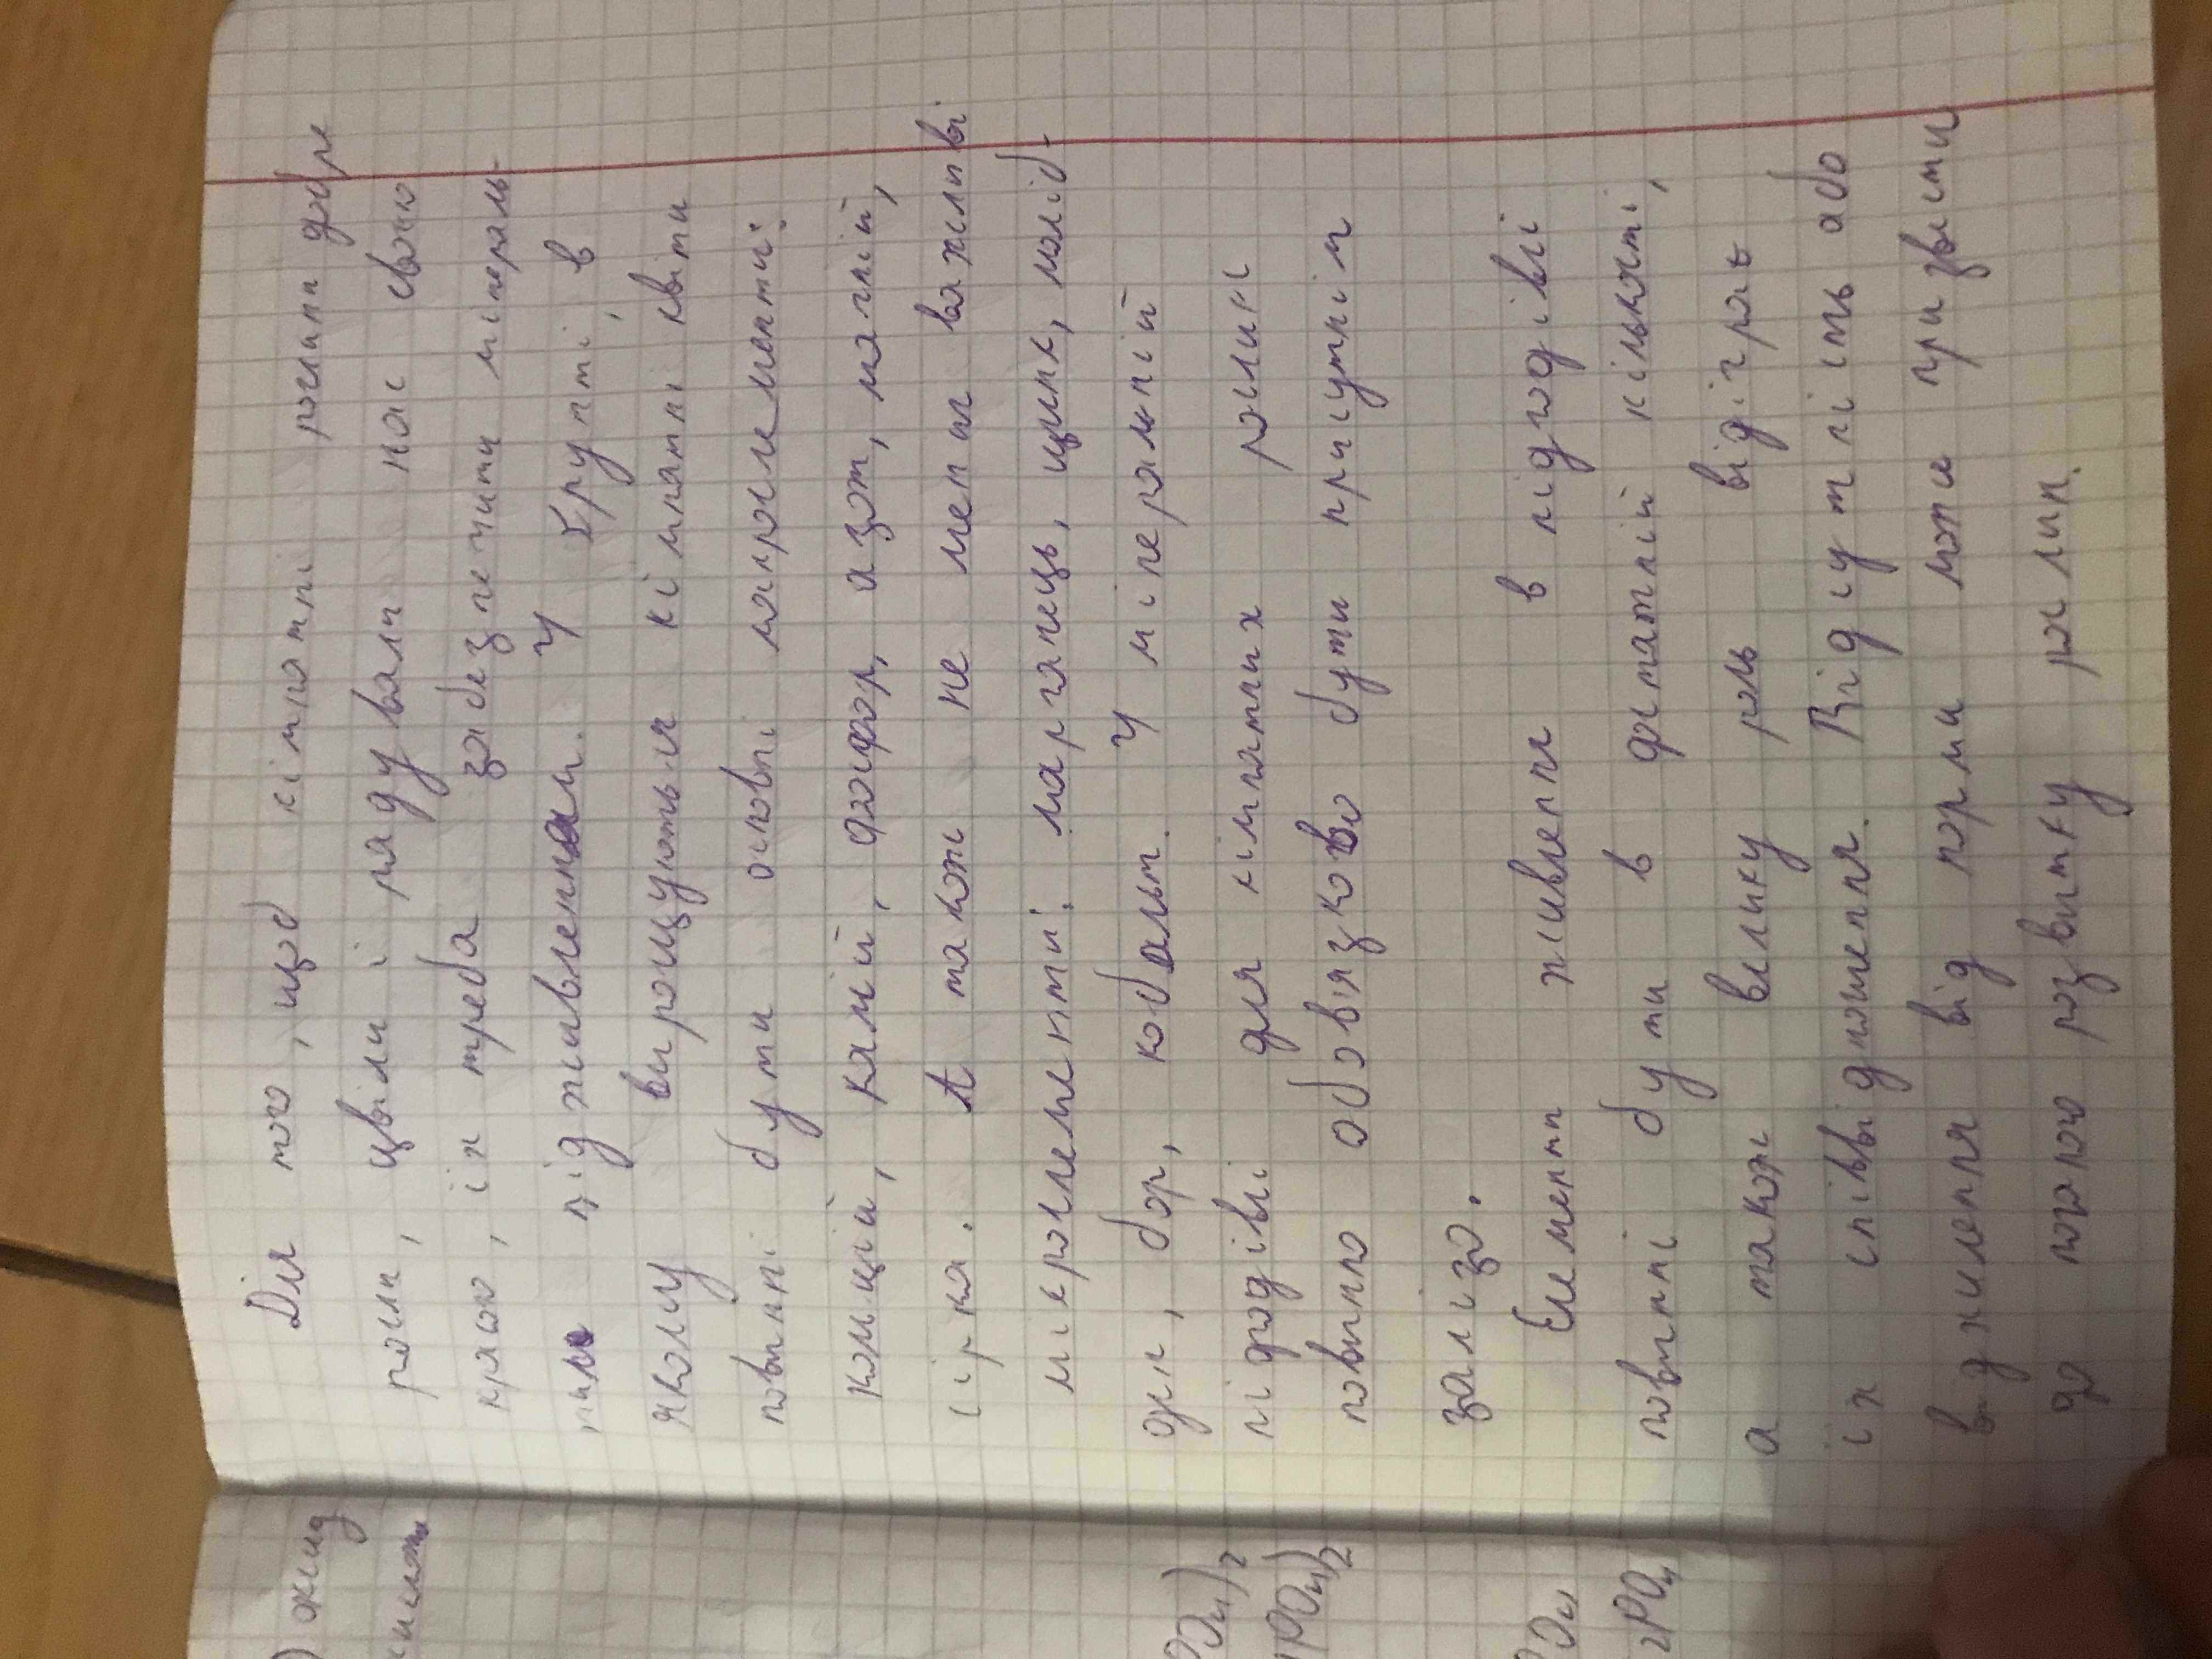 Для того, щоб кімнатні рослини добре
росли, цвіли і радували нас своєю
красою, їх треба забезпечити мінераль-
ним підживленням. У ґрунті, в
якому вирощуються кімнатні квіти
повинні бути основні макроелементи:
кальцій, калій, фосфор, азот, магній,
сірка. А також не менш важливі
мікроелементи: марганець, цинк, моліб-
ден, бор, кобальт. У мінеральній
підгодівлі для кімнатних рослин
повинно обов'язково бути присутнім
залізо.
Елементи живлення в підгодівлі
повинні бути в достатній кількості,
а також велику роль відіграє
їх співвідношення. Відсутність або
відхилення від норми може призвести
до поганого розвитку рослин.
оксид
кислоти
PO₄)₂
PO₄)₂
PO₄
₂PO₄